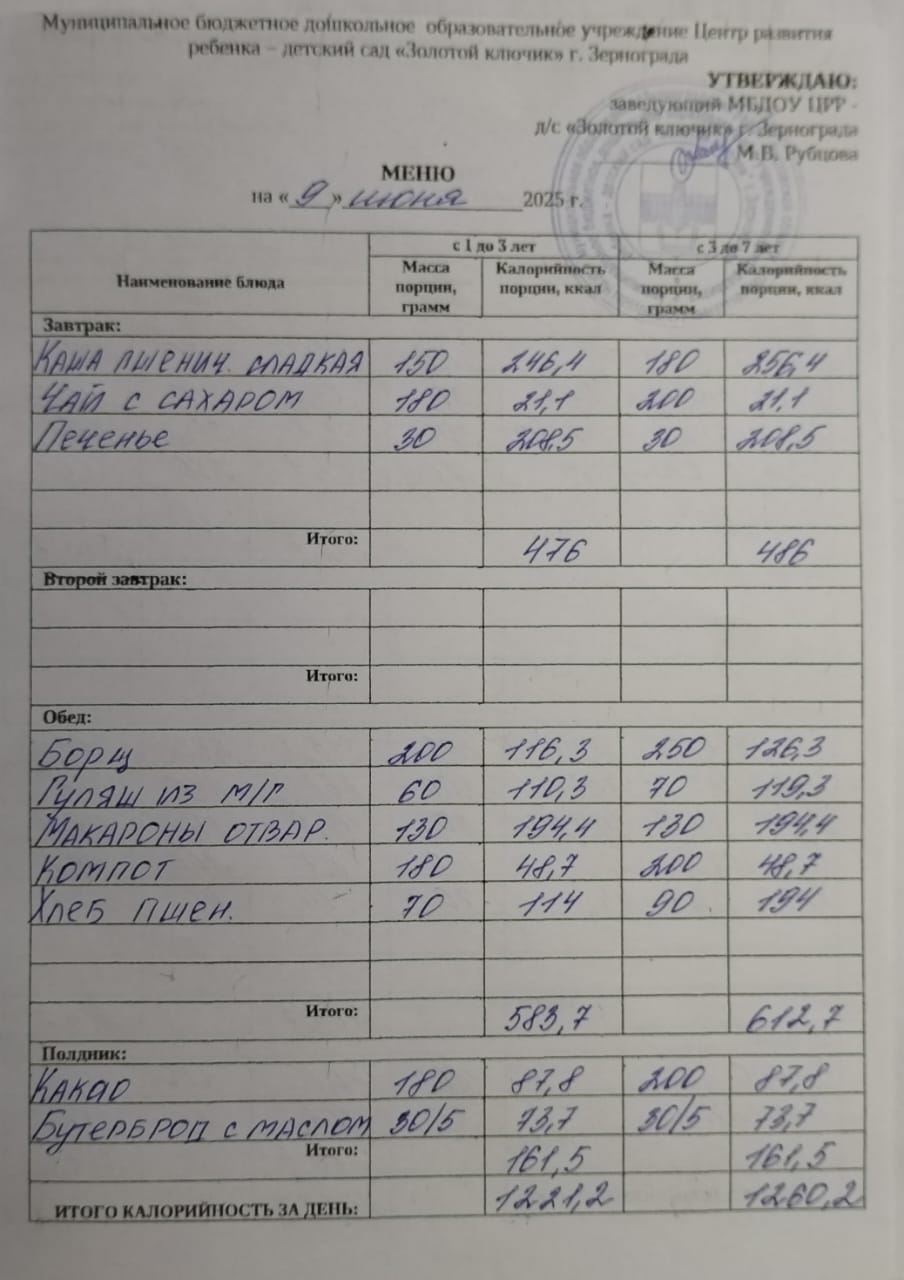 Муниципальное бюджетное дошкольное образовательное учреждение Центр развития
ребенка – детский сад «Золотой ключик» г. Зернограда
УТВЕРЖДАЮ:
заведующий МБДОУ ЦРР -
д/с «Золотой ключик» г. Зернограда
М.В. Рубцова
МЕНЮ
на « 9 » июня 2025 г.
Наименование блюда с 1 до 3 лет с 3 до 7 лет
Масса порции, грамм Калорийность порции, ккал Масса порции, грамм Калорийность порции, ккал
Завтрак:
Каша пшенич. сладкая 150 246,4 180 256,4
Чай с сахаром 180 21,1 200 21,1
Печенье 30 208,5 30 208,5
Итого: 476 486
Второй завтрак:
Итого:
Обед:
Борщ 200 116,3 250 126,3
Гуляш из м/г 60 110,3 70 119,3
Макароны отвар. 130 194,4 130 194,4
Компот 180 48,7 200 48,7
Хлеб пшен. 70 114 90 194
Итого: 583,7 612,7
Полдник:
Какао 180 87,8 200 87,8
Бутерброд с маслом 30/5 73,7 30/5 73,7
Итого: 161,5 161,5
ИТОГО КАЛОРИЙНОСТЬ ЗА ДЕНЬ: 1221,2 1260,2